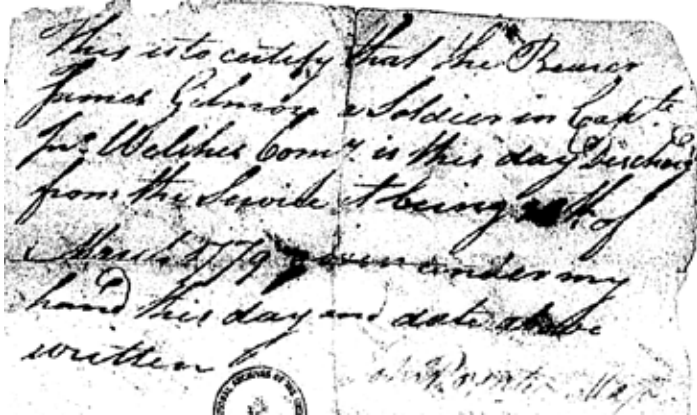 This is to certify that the Bearer
James Gilmore a Soldier in Capt.
Jno. Welches Comy. is this day Dischargd
from the Service it being of
March 1779 given under my
hand this day and date above
written